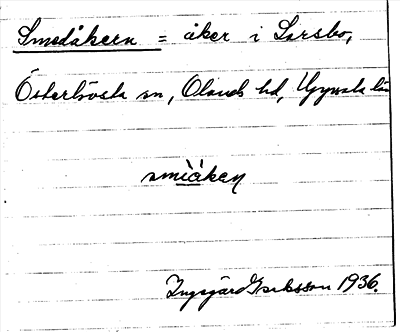 Smedåkern = åker i Sursbo,
Österlövsta sn, Olands hd, Uppsala län
smìåkeņ
Ingegärd Eriksson 1936.